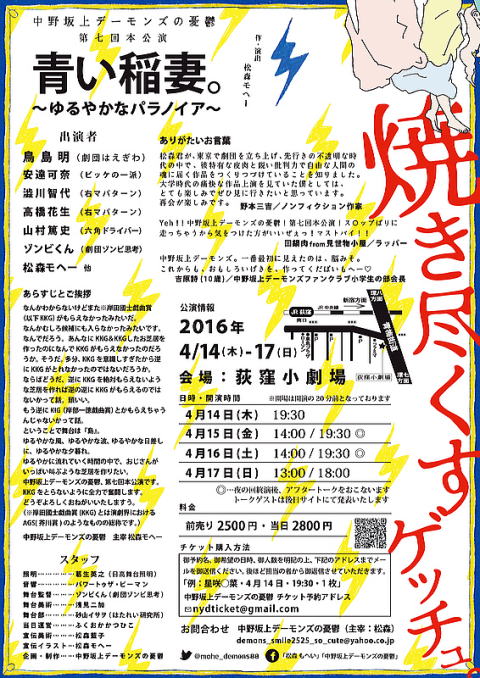 中野坂上デーモンズの憂鬱
第七回本公演
作・演出 松森モヘー
青い稲妻。
〜ゆるやかなパラノイア〜
焼き尽くすゲッチュ。
出演者
鳥島明（劇団はえぎわ）
安達可奈（ビッケの一派）
澁川智代（右マパターン）
高橋花生（右マパターン）
山村篤史（六角ドライバー）
ゾンビくん（劇団ゾンビ思考）
松森モヘー 他
ありがたいお言葉
松森君が、東京で劇団を立ち上げ、先行きの不透明な時
代の中で、彼特有な皮肉と鋭い批判力で自由な人間の
魂に届く作品をつくりつづけていることを知りました。
大学時代の痛快な作品上演を見ていた僕としては、
とても楽しみでぜひ見にいきたいと思っています。
再会が楽しみです。 野本三吉／ノンフィクション作家
Yeh!!中野坂上デーモンズの憂鬱！第七回本公演！スロップばりに
走っちゃうから気をつけた方がいいぜぇっ！マストバイ！！
田鯖肉from見世物小屋／ラッパー
中野坂上デーモンズ。一番最初に見えたのは、脳みそ。
これからも、おもしろいげきを、作ってくだぱいもへー♡
吉原詩（10歳）／中野坂上デーモンズファンクラブ小学生の部会長
あらすじとご挨拶
なんかわからないけどまた※岸田國士戯曲賞
(以下KKG)がもらえなかったみたいだ。
なんかむしろ候補にも入らなかったみたいです。
なんでだろう。あんなにKKG&KKGしたお芝居を
作ったのになんでKKGがもらえなかったのだろ
うか。そうだ、多分、KKGを意識しすぎたから逆
にKKGがとれなかったのではないだろうか。
ならばどうだ、逆にKKGを絶対もらえないよう
な芝居を作れば逆の逆にKKGがもらえるのでは
ないかって話、賢いい。
もう逆にKHG（岸部一徳戯曲賞）とかもらえちゃう
んじゃないかって話。
ということで舞台は『島』。
ゆるやかな風、ゆるやかな波、ゆるやかな日差し
に、ゆるやかな夕暮れ。
ゆるやかに流れていく時間の中で、おじさんが
いっぱい叫ぶような芝居を作りたい、
中野坂上デーモンズの憂鬱、第七回本公演です。
KKGをとらないように全力で奮闘します。
どうぞよろしくおねがいいたしますう。
（※岸田國士戯曲賞(KKG)とは演劇界における
AGS(芥川賞)のようなものの総称です。）
中野坂上デーモンズの憂鬱 主宰 松森モヘー
スタッフ
照明………葛生英之（日高舞台照明）
音響………パワートゥザ・ピーマン
舞台監督………ゾンビくん（劇団ゾンビ思考）
舞台美術………浅見二加
舞台部………砂山イサヲ（はたれい研究所）
当日運営………ふくおかかつひこ
宣伝美術………松森藍子
宣伝イラスト…松森モヘー
企画・制作………中野坂上デーモンズの憂鬱
公演情報
2016年
4/14(木)-17(日)
会場：荻窪小劇場
新宿方面
JR 荻窪
JR 中央線
荻窪小劇場
日時・開演時間 ※開場は開演の20分前となっております
4月14日(木) 19:30
4月15日(金) 14:00 / 19:30 ◎
4月16日(土) 14:00 / 19:30 ◎
4月17日(日) 13:00 / 18:00
◎…夜の回終演後、アフタートークをおこないます
トークゲストは後日サイトにて発表いたします
料金
前売り2500円・当日2800円
チケット購入方法
御予約名、御希望の日時、御人数を明記の上、下記のアドレスまでメー
ルを御送信ください、後ほど担当の者から御返信させていただきます。
『例：星咲〇菜・4月14日・19:30・1枚』
中野坂上デーモンズの憂鬱 チケット予約アドレス
✉nydticket@gmail.com
お問合わせ 中野坂上デーモンズの憂鬱（主宰：松森）
demons_smile2525_so_cute@yahoo.co.jp
@mohe_demons88 「松森もへい」「中野坂上デーモンズの憂鬱」